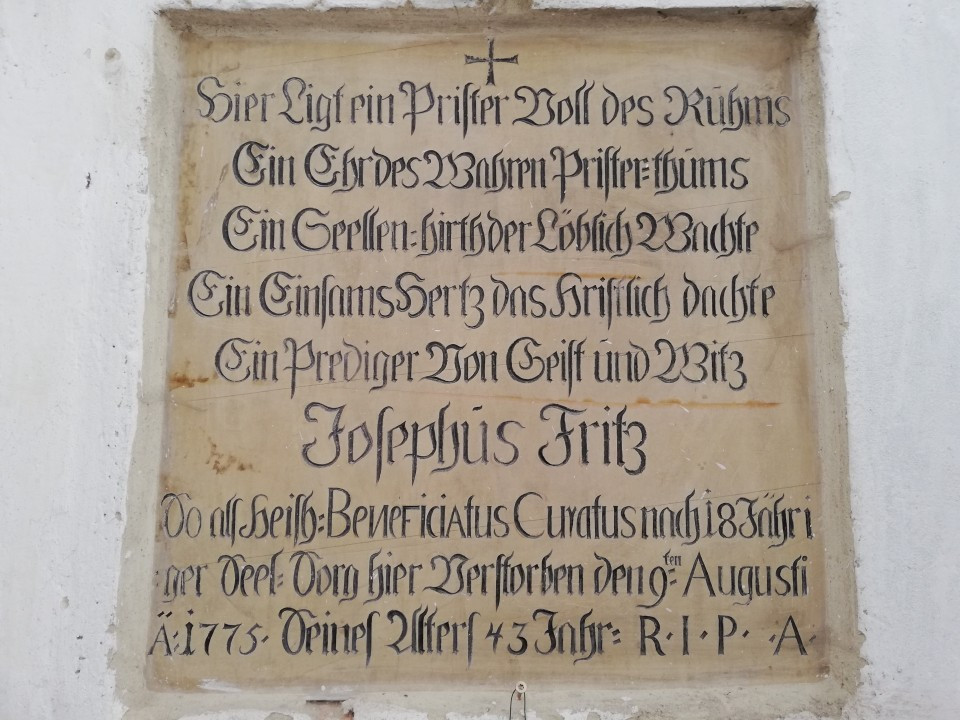 Hier Ligt ein Prister Voll des Rūhms
Ein Ehr des Wahren Prister=thūms
Ein Seellen=hirth der Löblich Wachte
Ein Einsams Hertz das Kristlich dachte
Ein Prediger Von Geist ūnd Witz
Josephūs Fritz
So als Beneficiatus Curatus nach 18 Jähri
ger Seel= Sorg hier Verstorben den 9ten= Augusti
Ä: 1775. Seines Alters 43 Jahr= R. I. P. A.